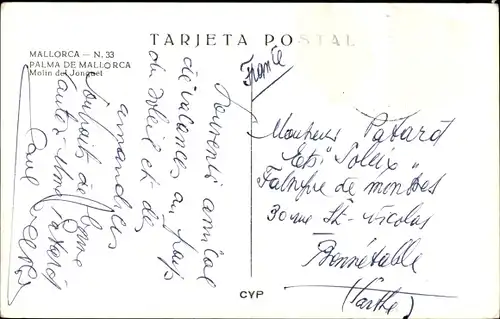 TARJETA POSTAL
MALLORCA — N. 33
PALMA DE MALLORCA
Molin del Jonquet
France
Souvenir amical
de vacances au pays
du soleil et des
amandiers
Souhaits de bonne
santé
Monsieur Patard
Ets "Soleix"
Fabrique de montres
30 rue St-Nicolas
Bonnétable
(Sarthe)
CYP